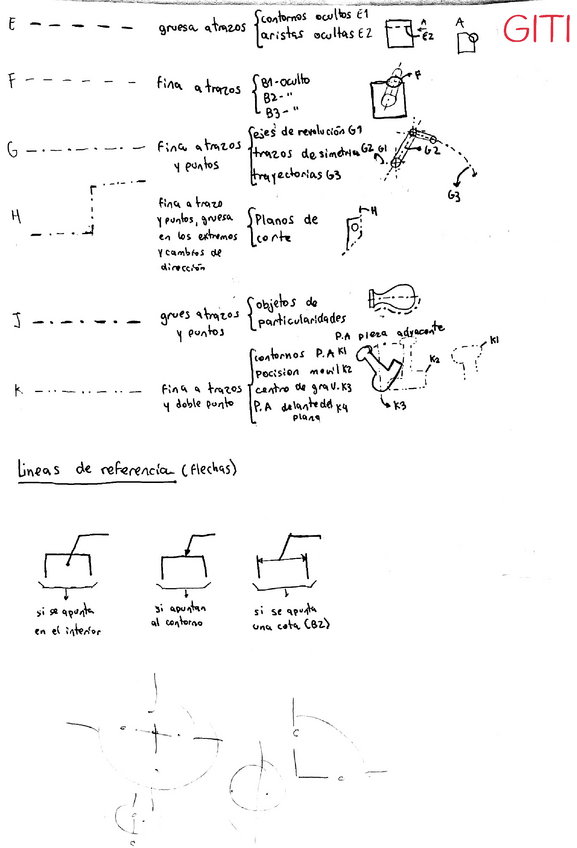 GITI
E gruesa a trazos contornos ocultos E1
aristas ocultas E2
A
E2
A
F fina a trazos B1-oculto
B2-"
B3-"
F
G fina a trazos y puntos ejes de revolución G1
trazos de simetria G2
trayectorias G3
G1
G2
G3
H fina a trazo
y puntos, gruesa
en los extremos
y cambios de
dirección
Planos de
corte
H
J grues atrazos
y puntos
objetos de
particularidades
P.A pieza adyacente
K fina a trazos
y doble punto
contornos P.A K1
pocision movil K2
centro de grav. K3
P.A delante del K4
plano
K1
K2
K3
Lineas de referencia (flechas)
si se apunta
en el interior
si apuntan
al contorno
si se apunta
una cota (B2)
c
c
c